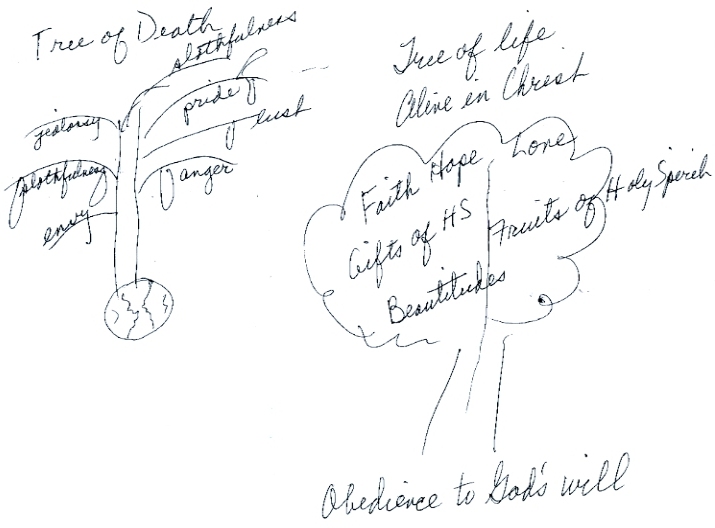 Tree of Death
slothfulness
pride
lust
jealousy
slothfulness
anger
envy
Tree of life
Alive in Christ
Faith Hope Love
Gifts of HS
Fruits of Holy Spirit
Beautitudes
Obedience to God's will